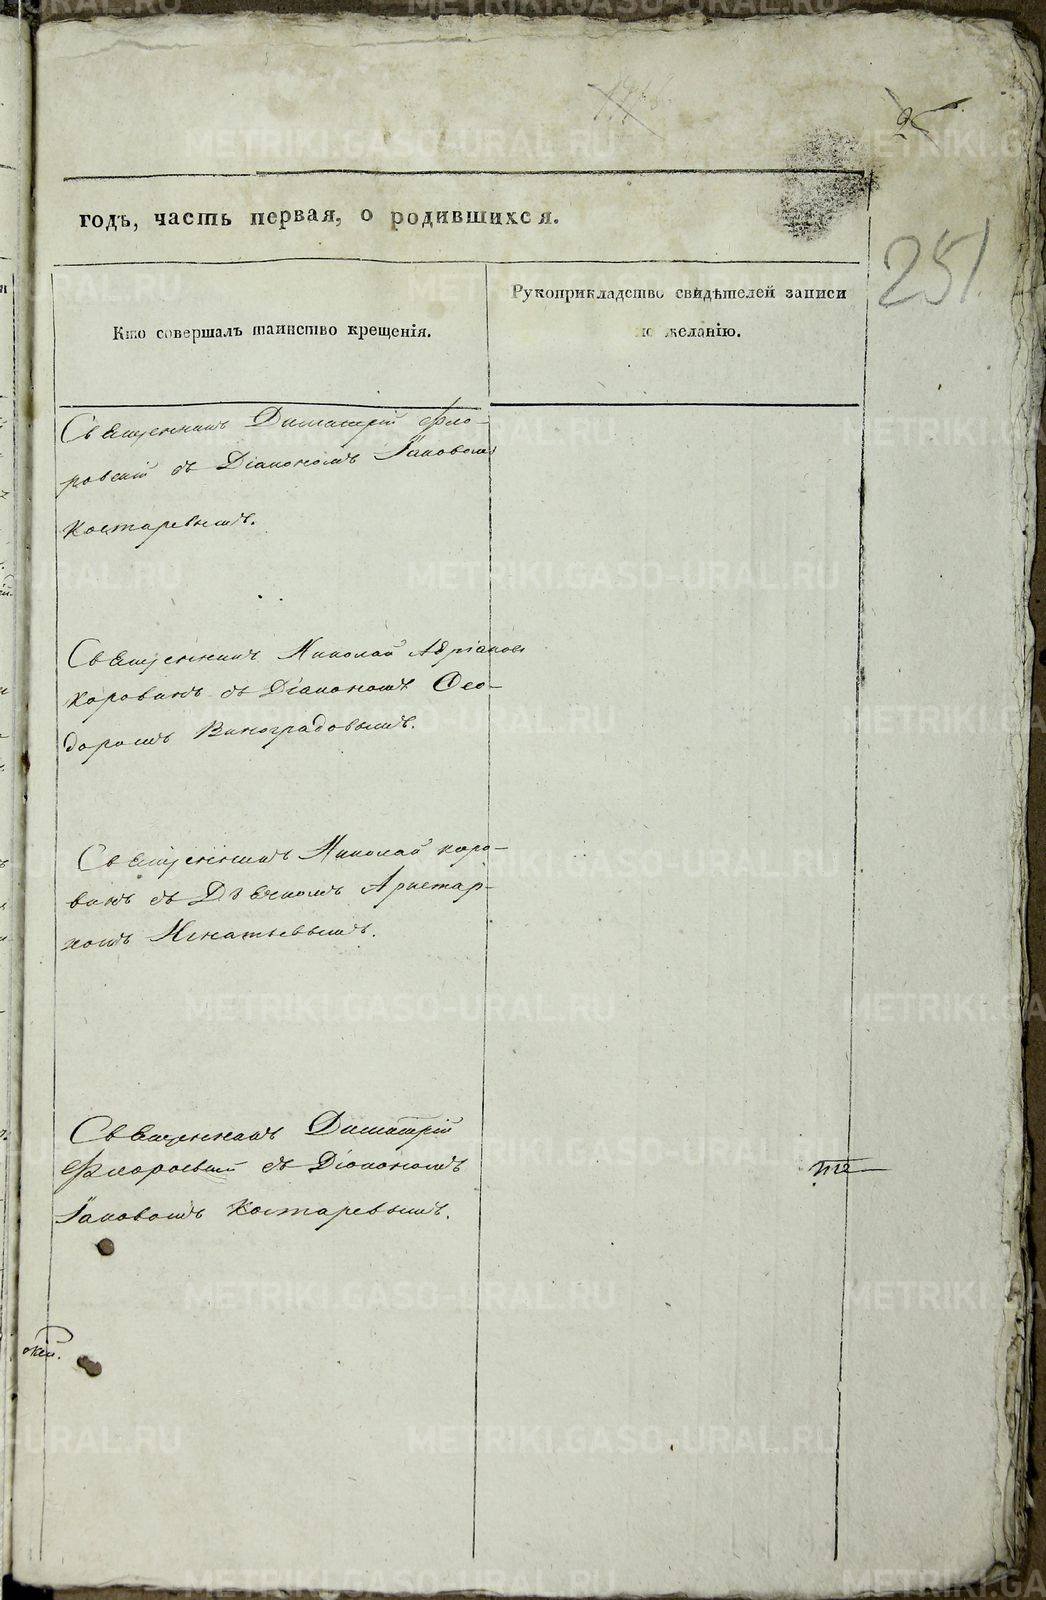 251
годъ, часть первая, о родившихся.
Кто совершалъ таинство крещенія.
Рукоприкладство свидѣтелей записи
по желанію.
Священникъ Димитрій Фло-
ровскій съ Діакономъ Іаковомъ
Костаревымъ.
Священникъ Николай Адріановъ
Коровинъ съ Діакономъ Ѳео-
доромъ Виноградовымъ.
Священникъ Николай Коро-
винъ съ Дьячкомъ Аристар-
хомъ Игнатьевымъ.
Священникъ Димитрій
Флоровскій съ Діакономъ
Іаковомъ Костаревымъ.
METRIKI.GASO-URAL.RU